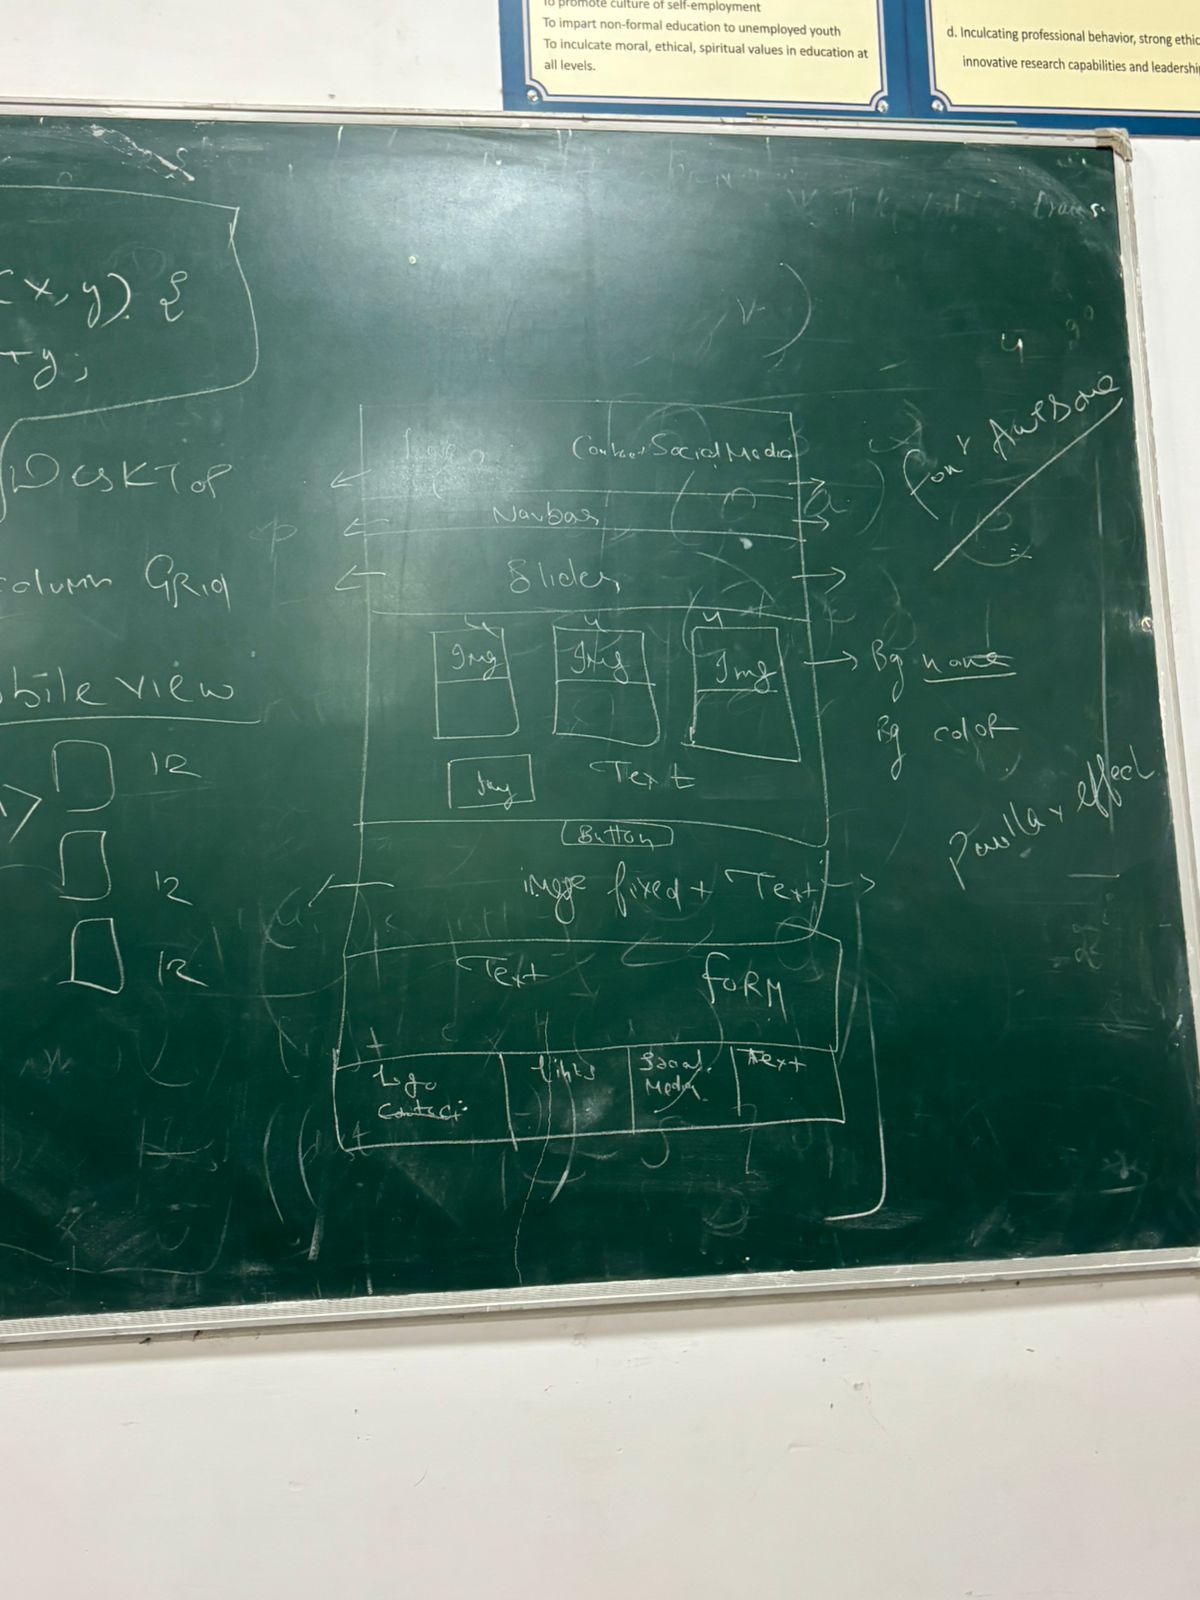 To promote culture of self-employment
To impart non-formal education to unemployed youth
To inculcate moral, ethical, spiritual values in education at
all levels.
d. Inculcating professional behavior, strong ethic
innovative research capabilities and leadershi
(x, y) {
+y;
DESKTOP
column GRID
bile view
12
12
12
Logo
Contact Social Media
Navbar
Slider
4
4
4
Img
Img
Img
Img
Text
Button
image fixed + Text
Text
FORM
Logo
Contact
Links
Social
Media
Text
4
Font Awesome
Bg name
Bg color
Parallax effect